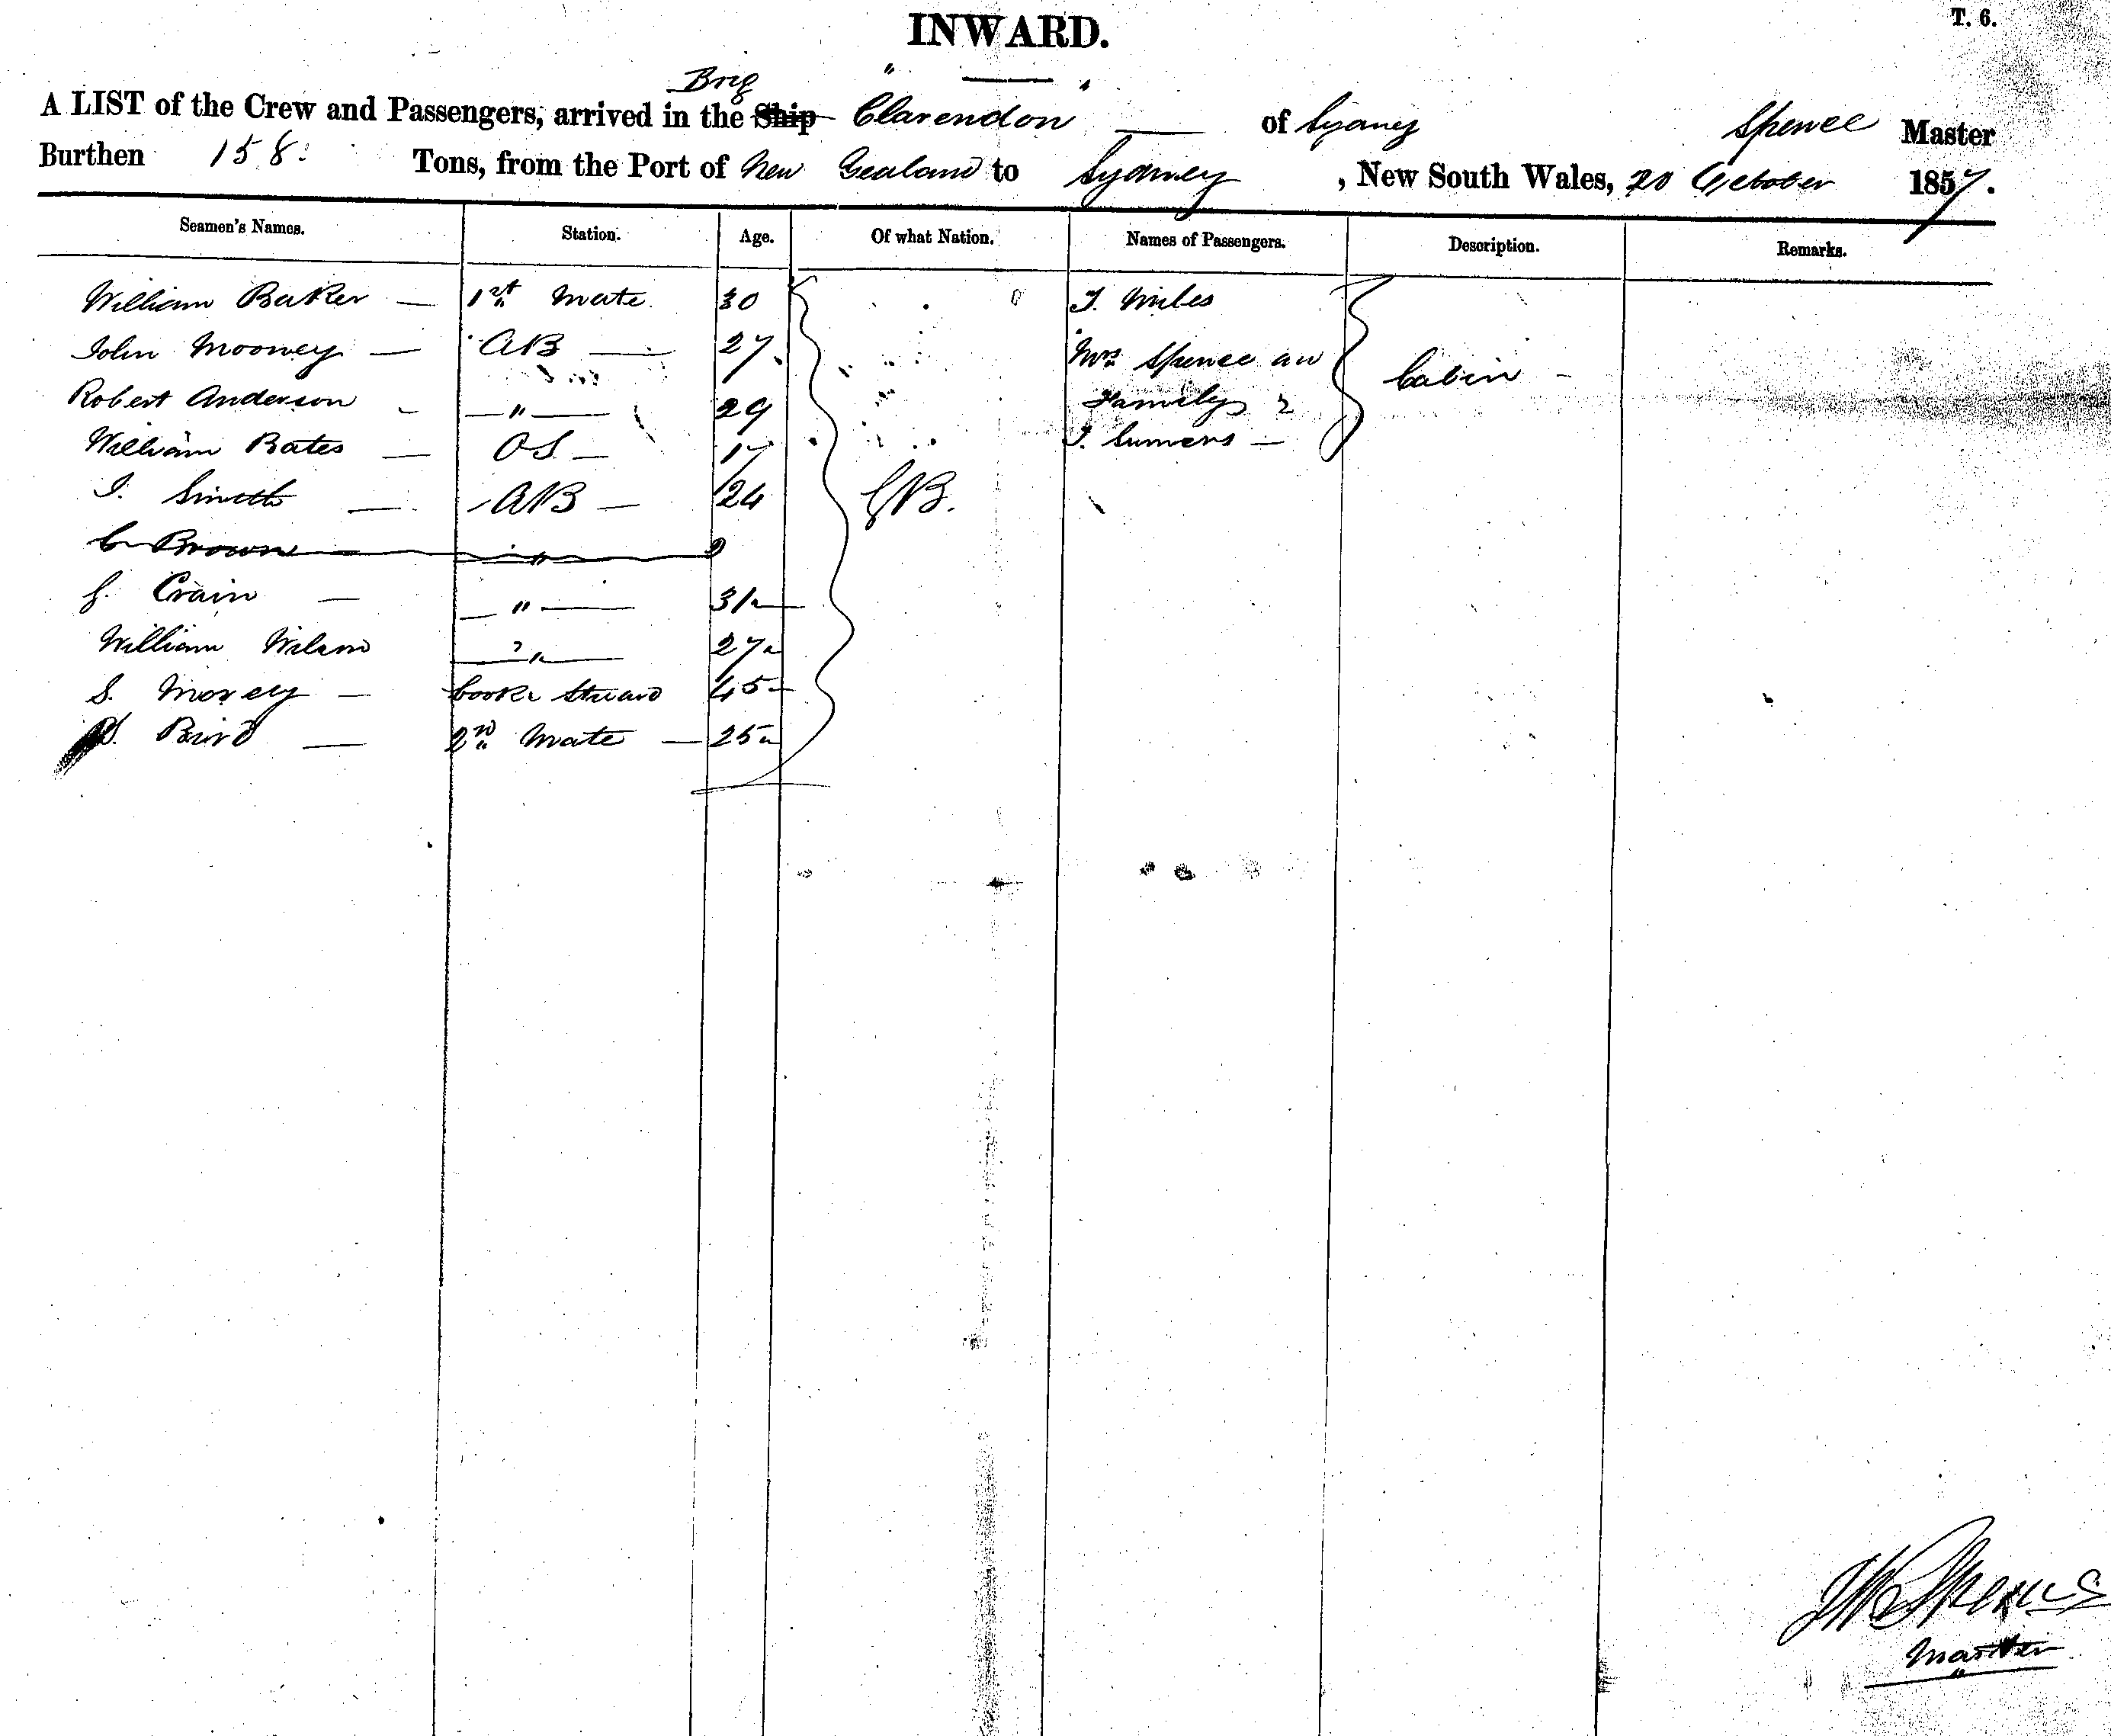 T. 6.
INWARD.
Brig
A LIST of the Crew and Passengers, arrived in the Ship Clarendon of Sydney Spence Master
Burthen 158 Tons, from the Port of New Zealand to Sydney, New South Wales, 20 October 1857.
Seamen's Names. Station. Age. Of what Nation. Names of Passengers. Description. Remarks.
William Baker — 1st Mate 30 J. Miles
John Mooney — AB — 27 Mrs Spence an
Cabin -
Robert Anderson - — " — 29 Family
William Bates — OS — 17 —
J. Smith — AB — 24 GB.
C Brown "
J. Crain — — " — 31
William Wilson — " — 27
S. Morey — Cook & Steward 45
Bird — 2nd Mate — 25
Spence
Master